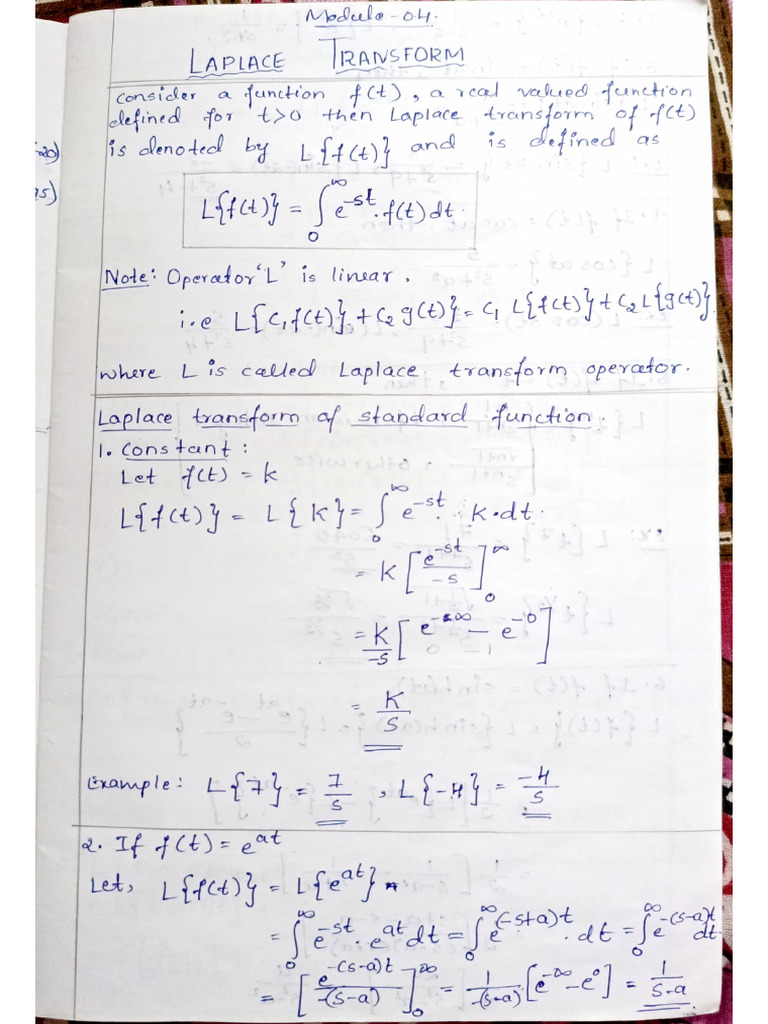 Module-04.
LAPLACE TRANSFORM
consider a function f(t), a real valued function
defined for t>0 then Laplace transform of f(t)
is denoted by L{f(t)} and is defined as
L{f(t)} = ∫₀^∞ e^-st · f(t) dt.
Note: Operator 'L' is linear.
i.e L{C₁ f(t)} + C₂ g(t)} = C₁ L{f(t)} + C₂ L{g(t)}.
where L is called Laplace transform operator.
Laplace transform of standard function.
1. Constant:
Let f(t) = k
L{f(t)} = L{K} = ∫₀^∞ e^-st · K·dt.
= K [e^-st / -s]₀^∞
= K/-s [e^-∞ - e^-0]
= K/s
Example: L{7} = 7/s , L{-4} = -4/s
2. If f(t) = e^at
Let, L{f(t)} = L{e^at}
= ∫₀^∞ e^-st · e^at dt = ∫₀^∞ e^(-s+a)t · dt = ∫₀^∞ e^-(s-a)t dt
= [e^-(s-a)t / -(s-a)]₀^∞ = 1/-(s-a) [e^-∞ - e^0] = 1/s-a
20)
5)